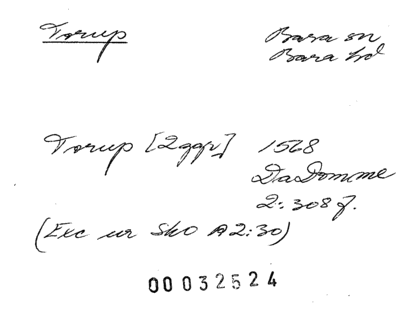 Torup Bara sn
Bara hd
Torup [2ggr] 1568
DaDomme
2:308 f.
(Exc ur SkO A2:30)
00032524